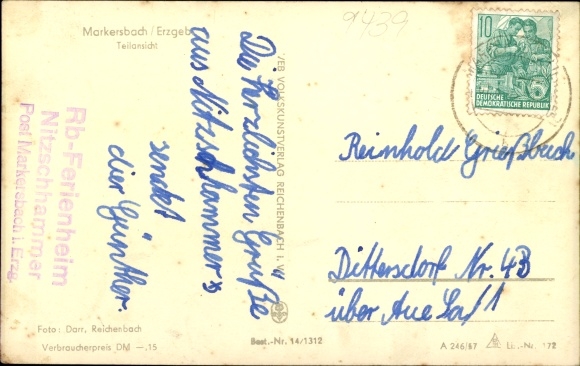 9439
Markersbach / Erzgeb
Teilansicht
Die herzlichsten Grüße
aus Nitzschhammer
sendet
dier Günther.
VEB VOLKSKUNSTVERLAG REICHENBACH i. V.
Rb-Ferienheim
Nitzschhammer
Post Markersbach i. Erzg.
10
DEUTSCHE
DEMOKRATISCHE REPUBLIK
Reinhold Grießbach
Dittersdorf Nr. 4B
über Aue
Foto: Darr, Reichenbach
Verbraucherpreis DM —.15
Best.-Nr. 14/1312
A 246/67
172